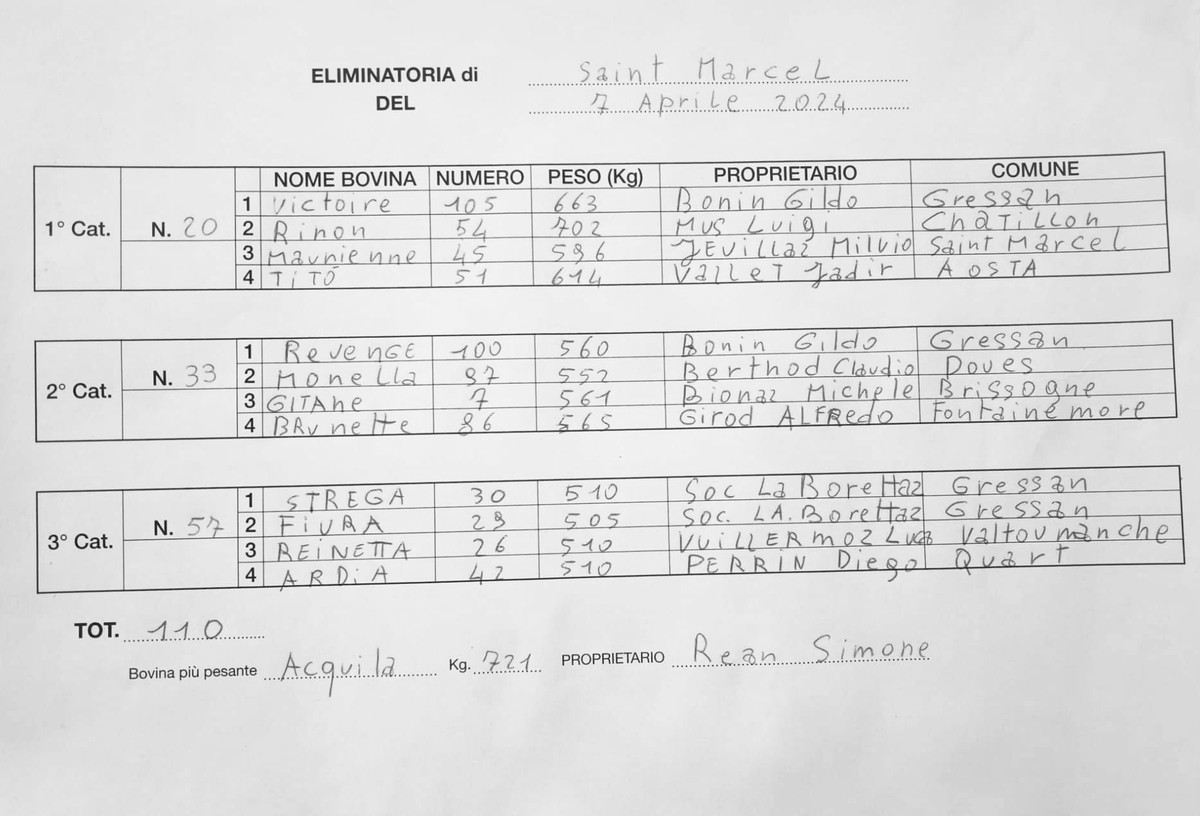 ELIMINATORIA di Saint Marcel
DEL 7 Aprile 2024
NOME BOVINA NUMERO PESO (Kg) PROPRIETARIO COMUNE
1° Cat. N. 20
1 Victoire 105 663 Bonin Gildo Gressan
2 Rinon 54 702 Mus Luigi Chatillon
3 Maurienne 45 596 Jevillaz Milvio Saint Marcel
4 TiTÓ 51 614 Vallet Jadir AOSTA
2° Cat. N. 33
1 RevenGE 100 560 Bonin Gildo Gressan
2 Monella 97 552 Berthod Claudio Doues
3 GITAne 7 561 Bionaz Michele Brissogne
4 BRunette 86 565 Girod ALFRedo Fontainemore
3° Cat. N. 57
1 STREGA 30 510 Soc La Borettaz Gressan
2 FiURA 29 505 Soc. LA. Borettaz Gressan
3 REINETTA 26 510 VUILLERMOZ Luca Valtournanche
4 ARDiA 42 510 PERRIN Diego Quart
TOT. 110
Bovina più pesante Acquila Kg. 721 PROPRIETARIO Rean Simone